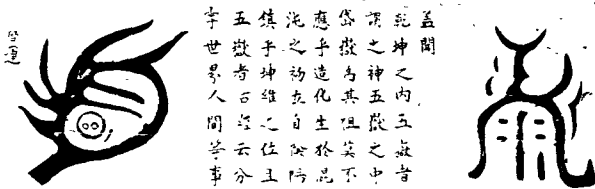 盖聞
乾坤之内五嶽者
謂之神五嶽之中
岱嶽為其祖莫不
應乎造化生於混
沌之初立自陰陽
鎮乎坤維之位主
五嶽者古經云分
掌世界人間等事